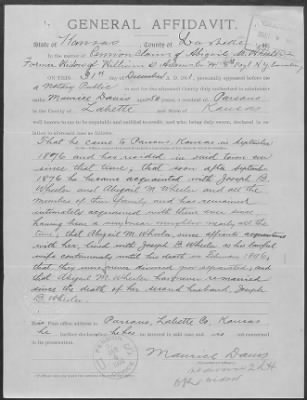 GENERAL AFFIDAVIT.
State of Kansas, County of Labette
In the matter of Pension Claim of Abigail M. Wheeler
Former Widow of William
ON THIS 31st day of December A. D. 1901, personally appeared before me
a Notary Public in and for the aforesaid County duly authorized to administer
oaths Maurice Davis aged years, a resident of Parsons
in the County of Labette and State of Kansas
well known to me to be reputable and entitled to credit, and who, being duly sworn, declared in relation
to aforesaid case as follows:
That he came to Parsons, Kansas in September
1876 and has resided in said town ever
since that time; that soon after September
1876 he became acquainted with Joseph B.
Wheeler and Abigail M. Wheeler and all the
members of their family and has remained
intimately acquainted with them ever since
having been a near neighbor nearly all the
time; that Abigail M. Wheeler, since affiants acquaintance
with her, lived with Joseph B. Wheeler as his lawful
wife continuously until his death in February 1896;
that they were never divorced nor separated; and
that Abigail M. Wheeler has never remarried
since the death of her second husband, Joseph
B. Wheeler.
Post office address is Parsons, Labette Co. Kansas
he further declares that he has no interest in said case and is not concerned
in its prosecution.
Maurice Davis